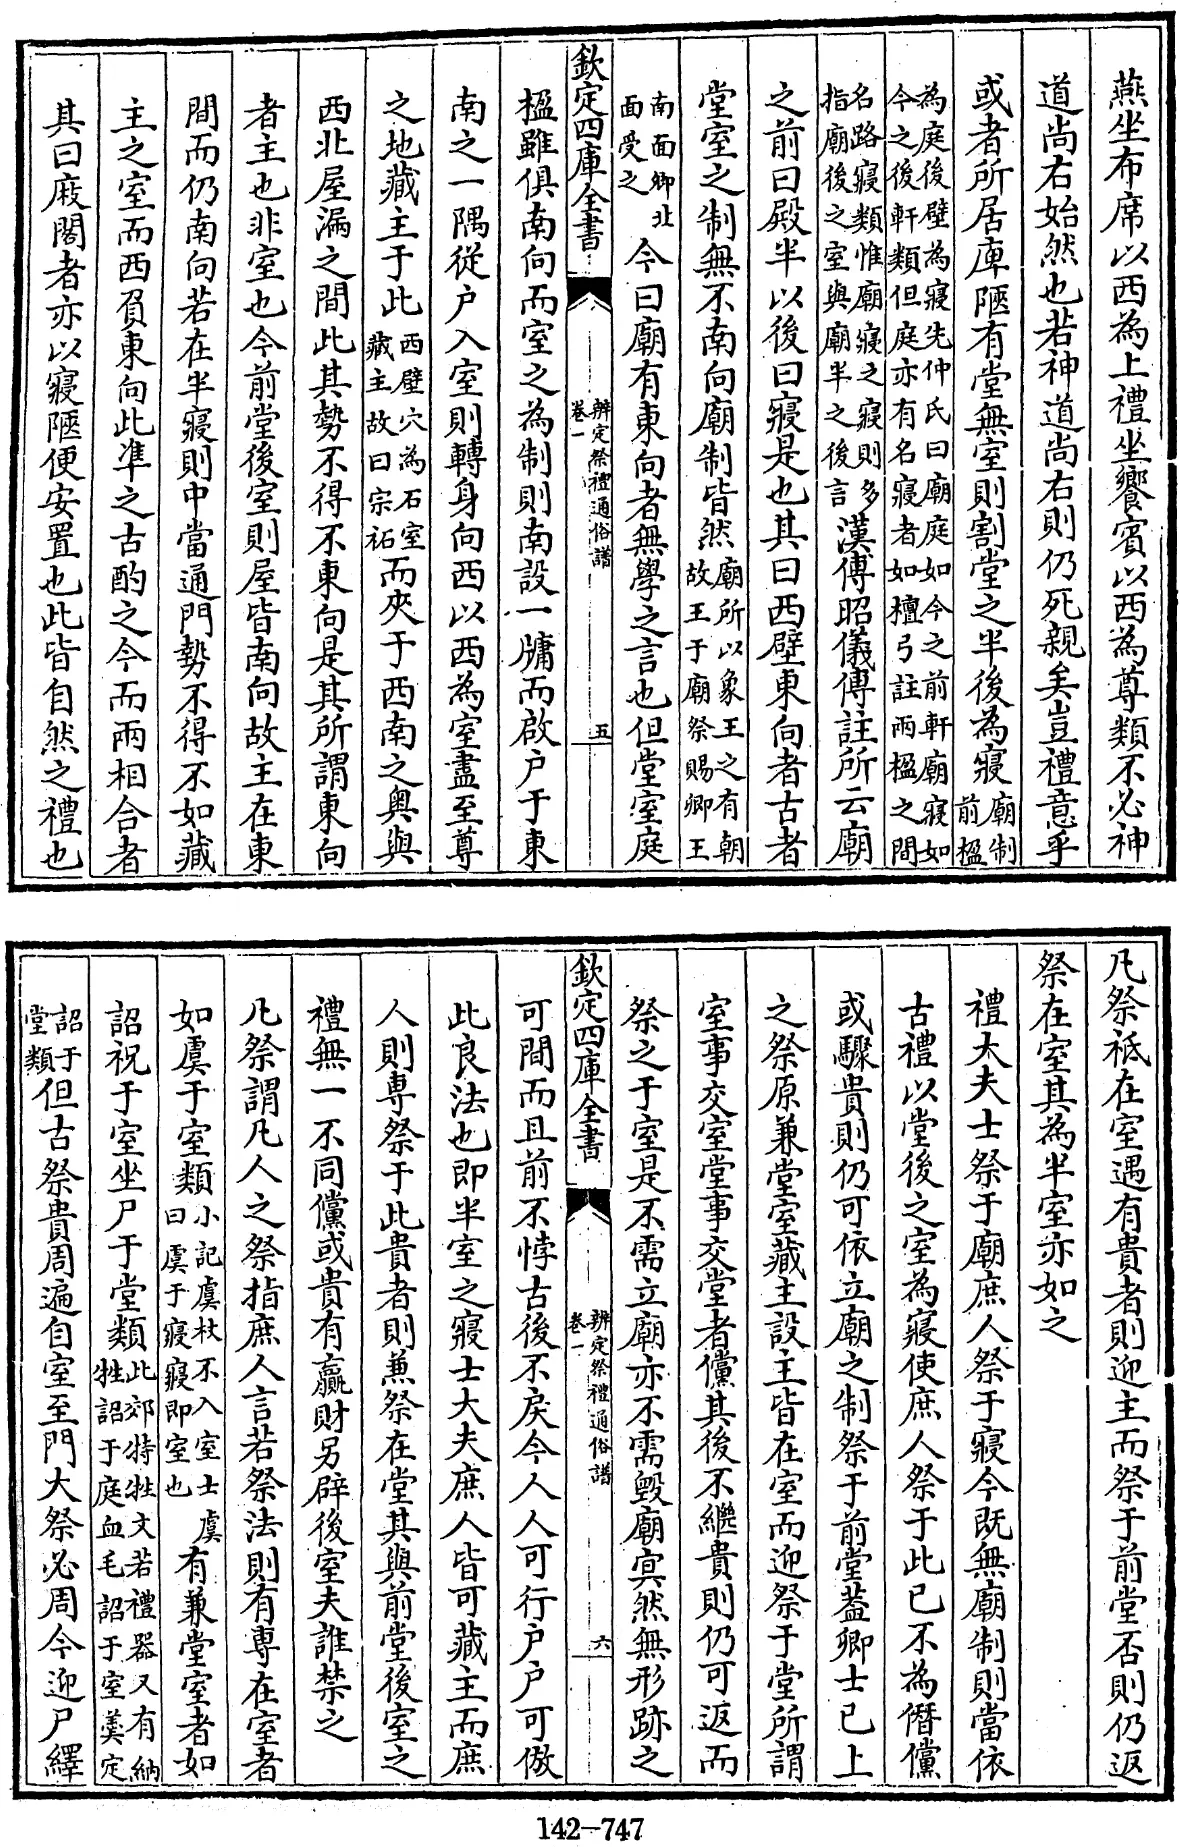 燕坐布席以西為上禮坐饗賓以西為尊類不必神
道尚右始然也若神道尚右則仍死親矣豈禮意乎
或者所居庫陋有堂無室則割堂之半後為寢廟制前楹
為庭後壁為寢先仲氏曰廟庭如今之前軒廟寢如
今之後軒類但庭亦有名寢者如檀弓註兩楹之間
名路寢類惟廟寢之寢則多
指廟後之室與廟半之後言漢傅昭儀傳註所云廟
之前曰殿半以後曰寢是也其曰西壁東向者古者
堂室之制無不南向廟制皆然廟所以象王之有朝故王于廟祭賜卿王
南面卿北面受之今曰廟有東向者無學之言也但堂室庭
欽定四庫全書 辨定祭禮通俗譜 卷一 五
楹雖俱南向而室之為制則南設一牖而啟户于東
南之一隅從户入室則轉身向西以西為室盡至尊
之地藏主于此西壁穴為石室藏主故曰宗祏而夾于西南之奥與
西北屋漏之間此其勢不得不東向是其所謂東向
者主也非室也今前堂後室則屋皆南向故主在東
間而仍南向若在半寢則中當通門勢不得不如藏
主之室而西負東向此準之古酌之今而兩相合者
其曰庪閣者亦以寢陋便安置也此皆自然之禮也
凡祭祇在室遇有貴者則迎主而祭于前堂否則仍返
祭在室其為半室亦如之
禮大夫士祭于廟庶人祭于寢今既無廟制則當依
古禮以堂後之室為寢使庶人祭于此已不為僭儻
或驟貴則仍可依立廟之制祭于前堂蓋卿士已上
之祭原兼堂室藏主設主皆在室而迎祭于堂所謂
室事交室堂事交堂者儻其後不繼貴則仍可返而
祭之于室是不需立廟亦不需毁廟寘然無形跡之
欽定四庫全書 辨定祭禮通俗譜 卷一 六
可間而且前不悖古後不戾今人人可行户户可倣
此良法也即半室之寢士大夫庶人皆可藏主而庶
人則専祭于此貴者則兼祭在堂其與前堂後室之
禮無一不同儻或貴有贏財另辟後室夫誰禁之
凡祭謂凡人之祭指庶人言若祭法則有專在室者
如虞于室類小記虞杖不入室士虞曰虞于寢寢即室也有兼堂室者如
詔祝于室坐尸于堂類此郊特牲文若禮器又有納牲詔于庭血毛詔于室羹定
詔于堂類但古祭貴周遍自室至門大祭必周今迎尸繹
142-747